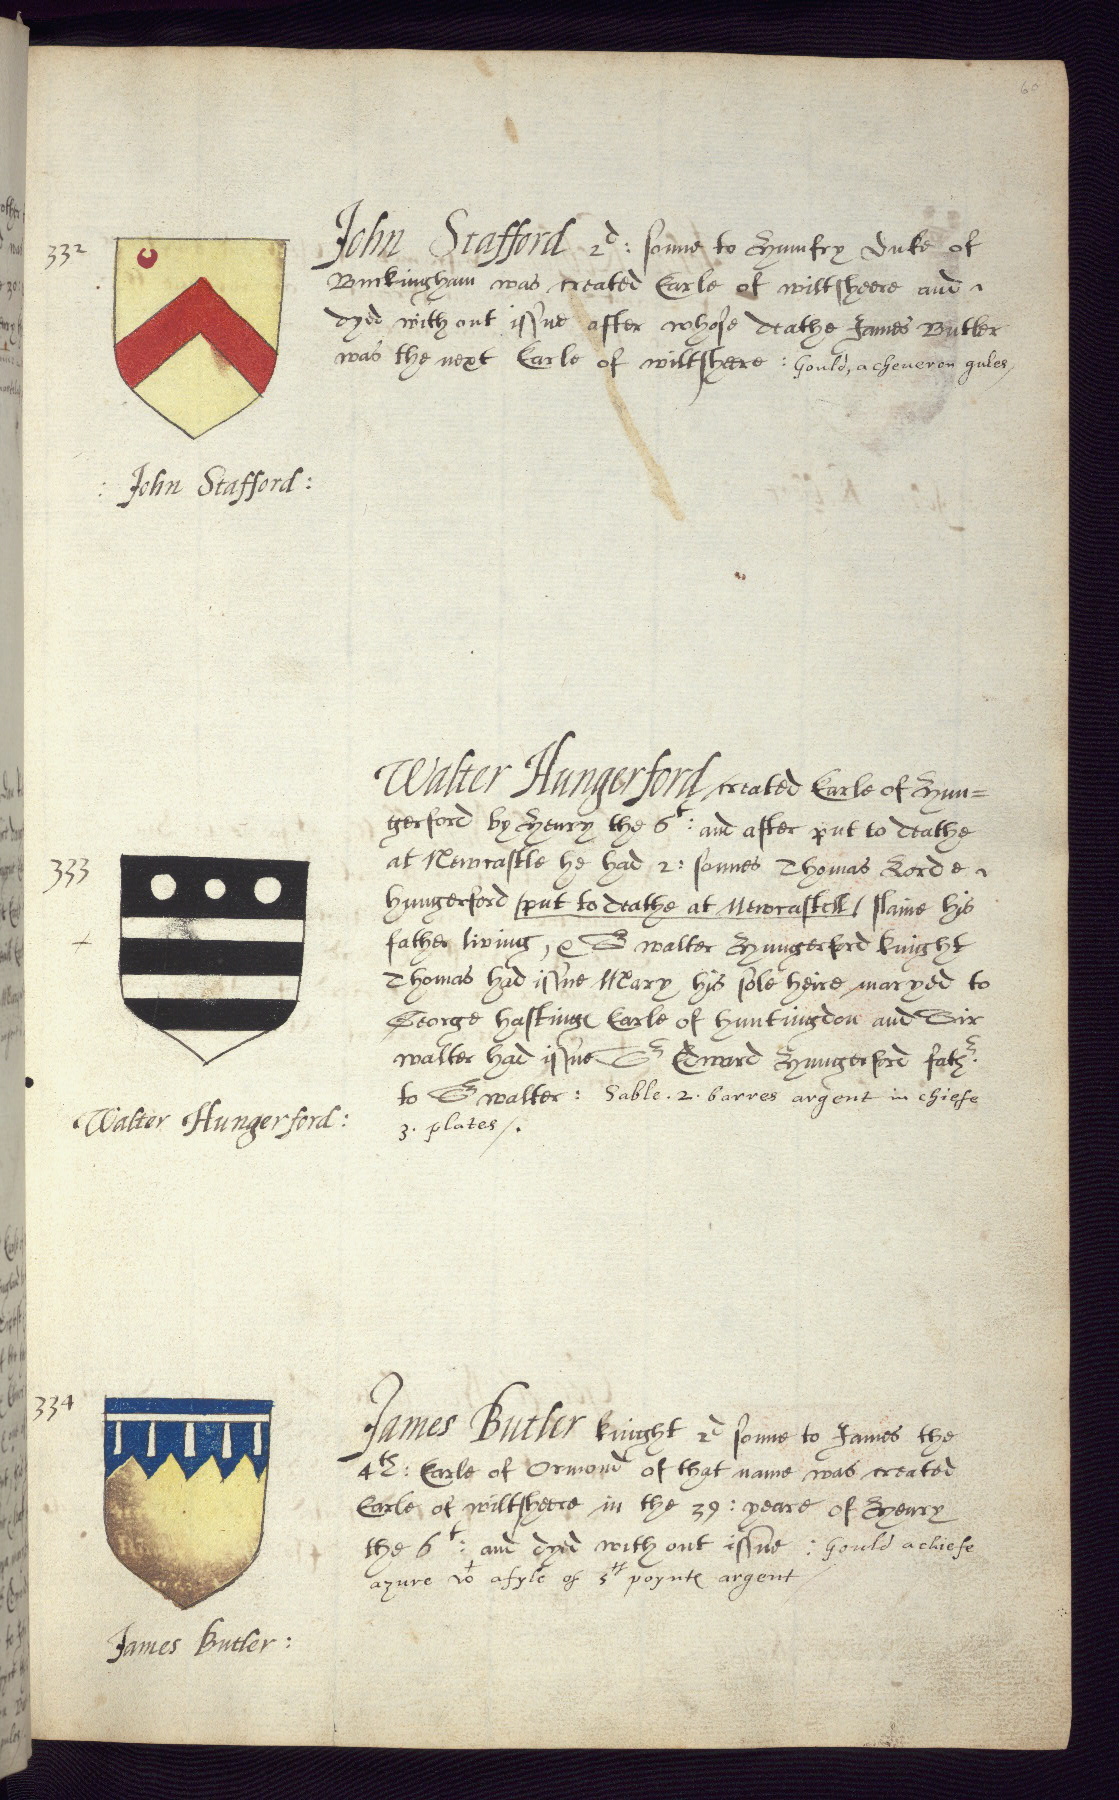 60
332
John Stafford 2d: sonne to Humfry Duke of
Buckingham was created Earle of wiltsheere and
dyed with out issue after whose deathe James Butler
was the next Earle of wiltsheere : Gould, a cheueron gules/
: John Stafford :
Walter Hungerford created Earle of Hun=
gerford by Henry the 6t: and after put to deathe
333
at Newcastle he had 2: sonnes Thomas Lorde
hungerford /put to deathe at Newcastell/ slaine his
father living, & Sr walter Hungerford knight
Thomas had issue Mary his sole heire maryed to
George hastinge Earle of huntingdon and Sir
walter had issue Sr Edward Hungerford fathr.
to Sr walter : Sable . 2 . barres argent in chiefe
3 . plates /.
Walter Hungerford :
334
James Butler knight 2d sonne to James the
4th: Earle of Ormond of that name was created
Earle of wiltsheere in the 39 : yeare of Henry
the 6t: and dyed with out issue : Gould a chiefe
azure wt a fyle of 5 poynte argent
James Butler :